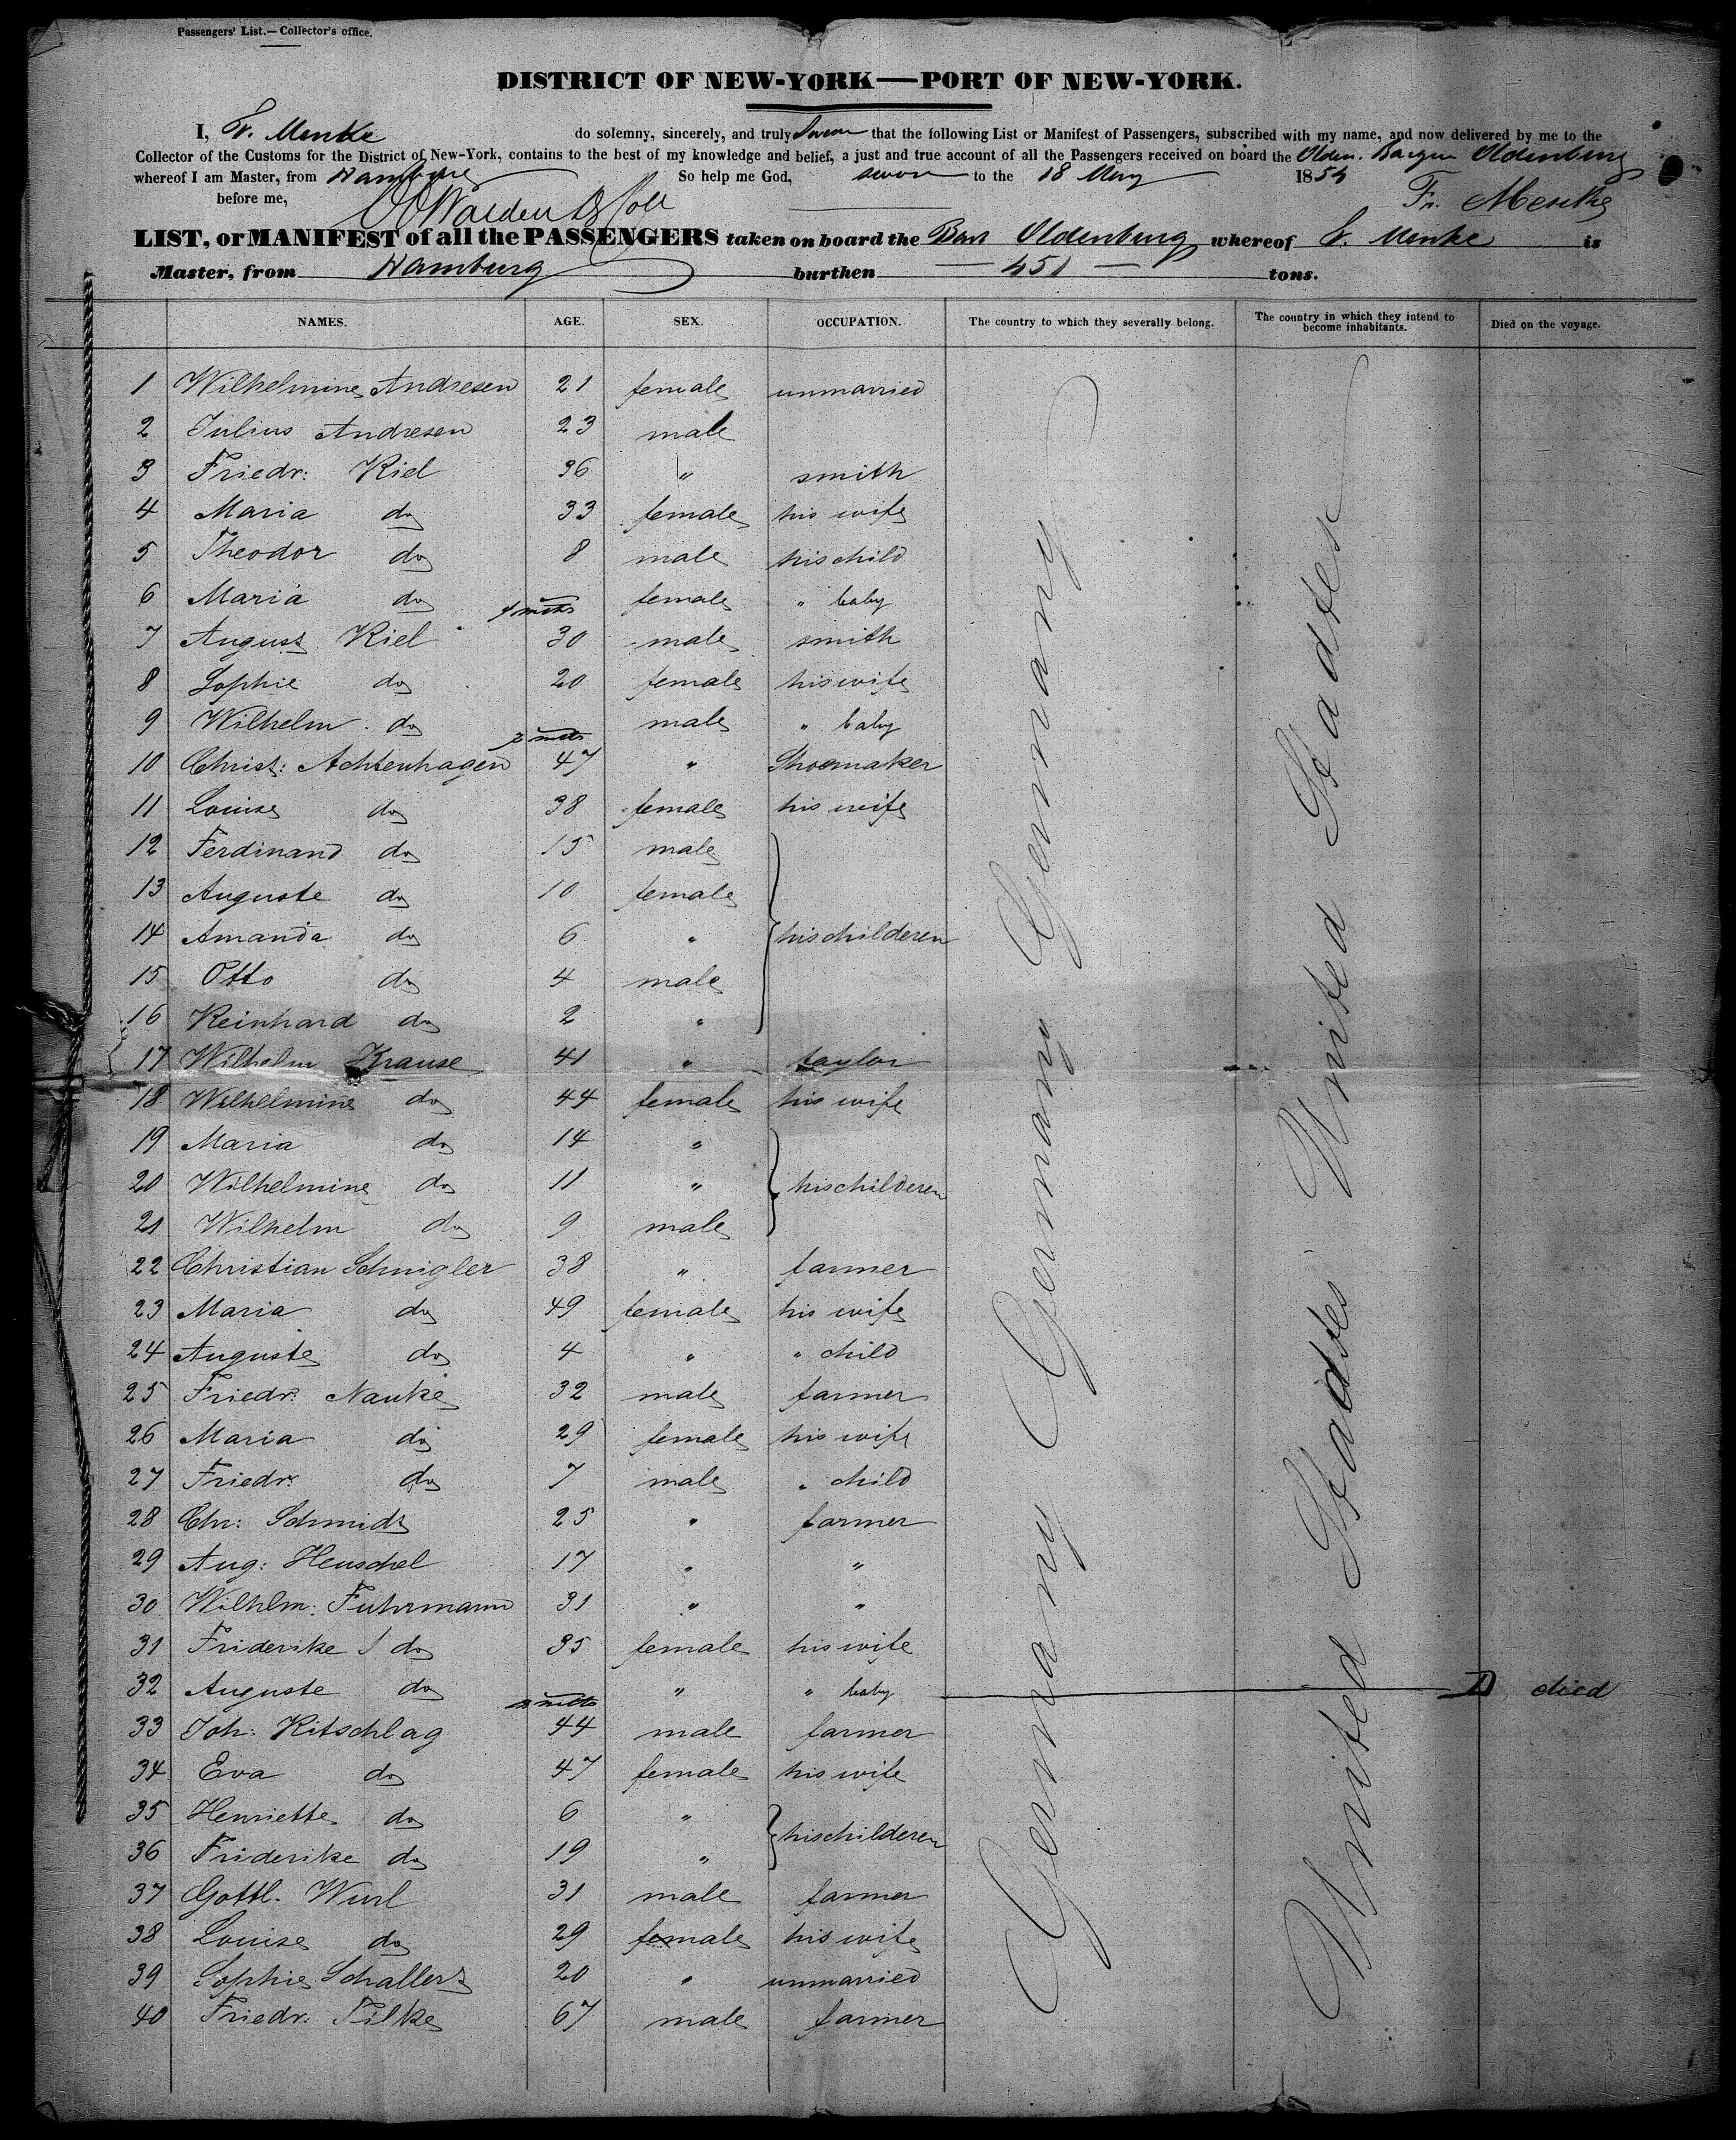 Passengers' List.—Collector's office.
DISTRICT OF NEW-YORK—PORT OF NEW-YORK.
I, Fr. Menke do solemny, sincerely, and truly swear that the following List or Manifest of Passengers, subscribed with my name, and now delivered by me to the
Collector of the Customs for the District of New-York, contains to the best of my knowledge and belief, a just and true account of all the Passengers received on board the Olden. Barque Oldenburg
whereof I am Master, from Hamburg So help me God, sworn to the 18 May 1854
before me, Fr. Menke
LIST, or MANIFEST of all the PASSENGERS taken on board the Bark Oldenburg whereof Fr. Menke is
Master, from Hamburg burthen — 451 — tons.
NAMES. AGE. SEX. OCCUPATION. The country to which they severally belong. The country in which they intend to become inhabitants. Died on the voyage.
1 Wilhelmine Andresen 21 female unmarried
2 Julius Andresen 23 male
3 Friedr: Kiel 36 " smith
4 Maria do 33 female his wife
5 Theodor do 8 male his child
6 Maria do mths female " baby
7 August Kiel 30 male smith
8 Sophie do 20 female his wife
9 Wilhelm do mths male " baby
10 Christ: Achtenhagen 47 " Shoemaker
11 Louise do 38 female his wife
12 Ferdinand do 15 male
13 Auguste do 10 female
14 Amanda do 6 " his childeren
15 Otto do 4 male
16 Reinhard do 2 "
17 Wilhelm Krause 41 " taylor
18 Wilhelmine do 44 female his wife
19 Maria do 14 "
20 Wilhelmine do 11 " his childeren
21 Wilhelm do 9 male
22 Christian Schnigler 38 " farmer
23 Maria do 49 female his wife
24 Auguste do 4 " " child
25 Friedr. Nauke 32 male farmer
26 Maria do 29 female his wife
27 Friedr. do 7 male " child
28 Chr: Schmidt 25 " farmer
29 Aug: Henschel 17 " "
30 Wilhlm: Fuhrmann 31 " "
31 Friderike do 35 female his wife
32 Auguste do mths " " baby D died
33 Joh: Kitschlag 44 male farmer
34 Eva do 47 female his wife
35 Henriette do 6 " his childeren
36 Friderike do 19 "
37 Gottl. Wurl 31 male farmer
38 Louise do 29 female his wife
39 Sophie Schallert 20 " unmarried
40 Friedr. Filke 67 male farmer
Germany Germany Germany Germany
United Stadtes United Stadtes